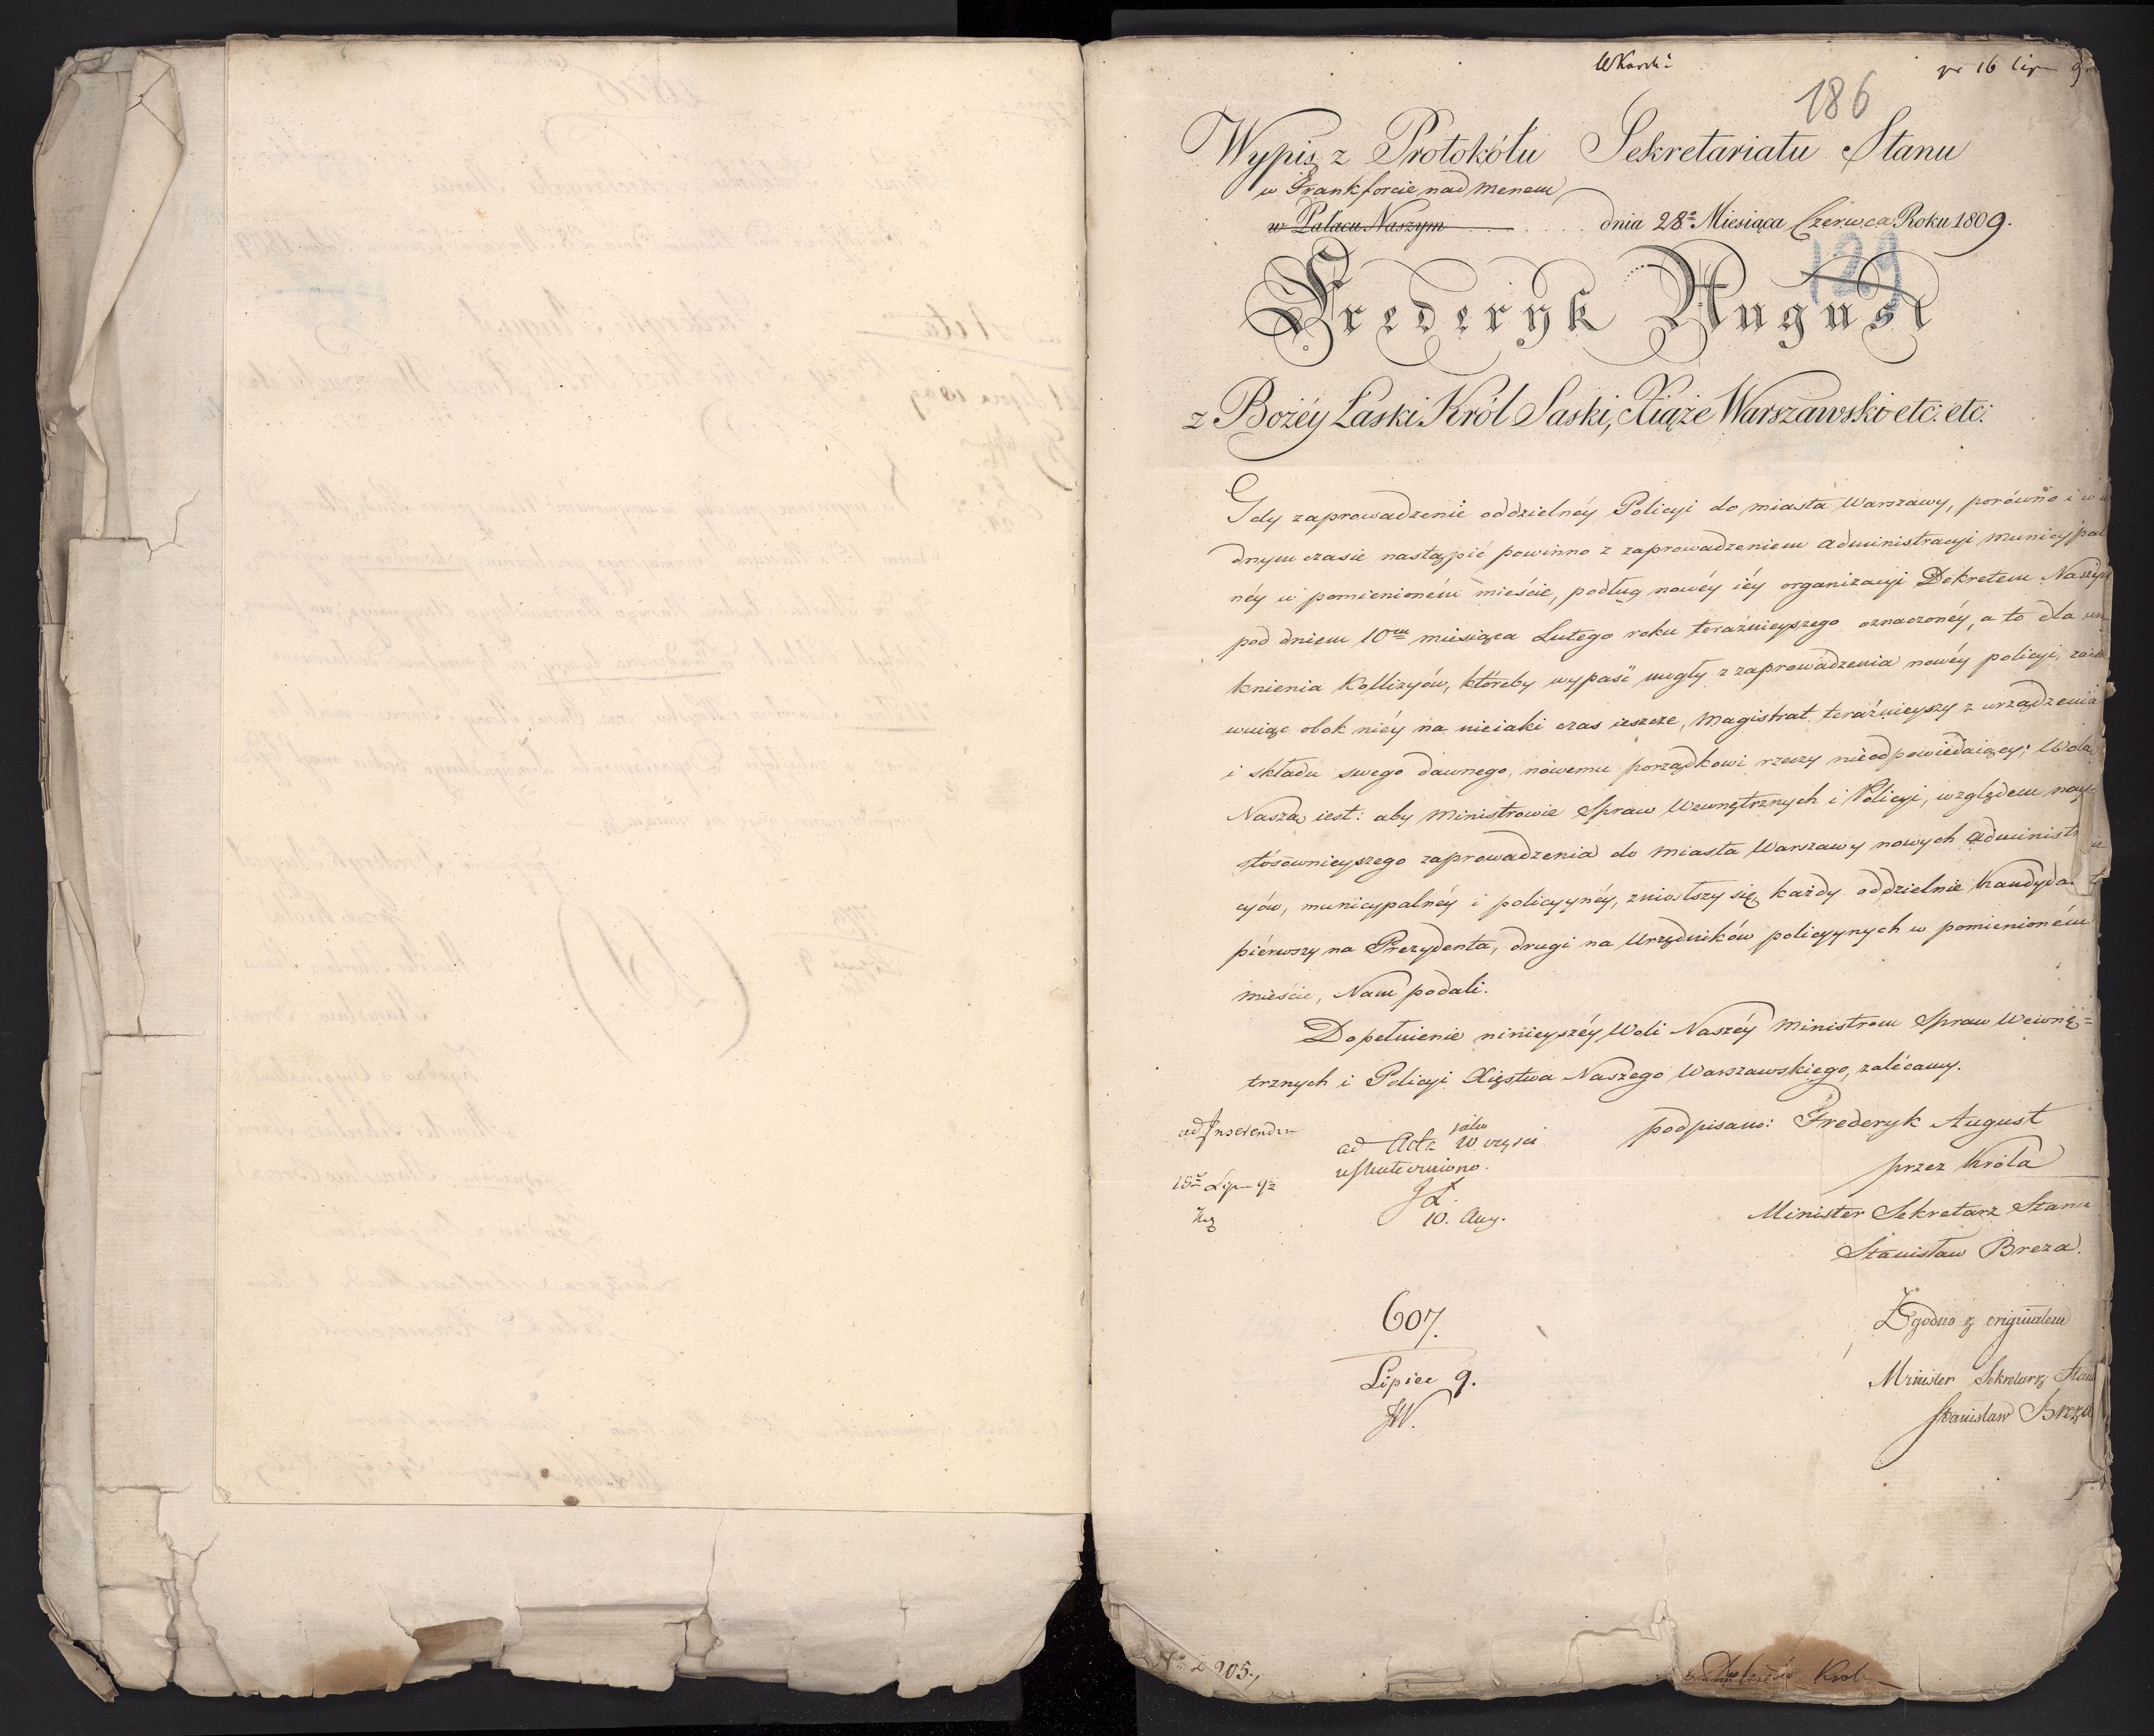 186
Wypis z Protokółu Sekretariatu Stanu
w Frankforcie nad Menem
w Pałacu Naszym dnia 28º Miesiąca Czerwca Roku 1809.
129
Frederyk August
z Bożéy Łaski Król Saski, Xiąże Warszawski etc: etc:
Gdy zaprowadzenie oddzielnéy Policyi do miasta Warszawy, porówno i w
dnym czasie nastąpić powinno z zaprowadzeniem administracyi municypal
néy w pomienioném mieście, podług nowéy iéy organizacyi Dekretem Naszym
pod dniem 10m miesiąca Lutego roku teraźnieyszego oznaczonéy, a to dla un
knienia Kollizyów, któreby wypaść mogły z zaprowadzenia nowéy policyi,
wuiąc obok niéy na nieiaki czas ieszcze, Magistrat teraźnieyszy z urządzenia
i składu swego dawnego, nowemu porządkowi rzeczy nieodpowiedaiący; Wolą
Naszą iest: aby Ministrowie Spraw Wewnętrznych i Policyi, względem nay=
stósownieyszego zaprowadzenia do miasta Warszawy nowych administr
cyów, municypalnéy i policyynéy, zniosłszy się, każdy oddzielnie kandyda
piérwszy na Prezydenta, drugi na Urzędników policyynych w pomienioném
mieście, Nam podali.
Dopełnienie ninieyszéy Woli Naszéy Ministrom Spraw Wewnę=
trznych i Policyi Xięstwa Naszego Warszawskiego, zalécamy.
podpisano: Frederyk August
przez Króla
Minister Sekretarz Stanu
Stanisław Breza.
ad Acta
uskuteczniono.
10. Aug.
607.
Lipiec 9.
Zgodno z originałem
Minister Sekretarz Stanu
Stanisław Breza